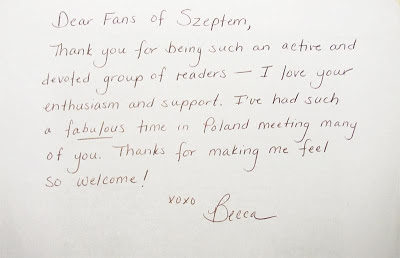 Dear Fans of Szeptem,
Thank you for being such an active and
devoted group of readers — I love your
enthusiasm and support. I've had such
a fabulous time in Poland meeting many
of you. Thanks for making me feel
so welcome!
xoxo Becca